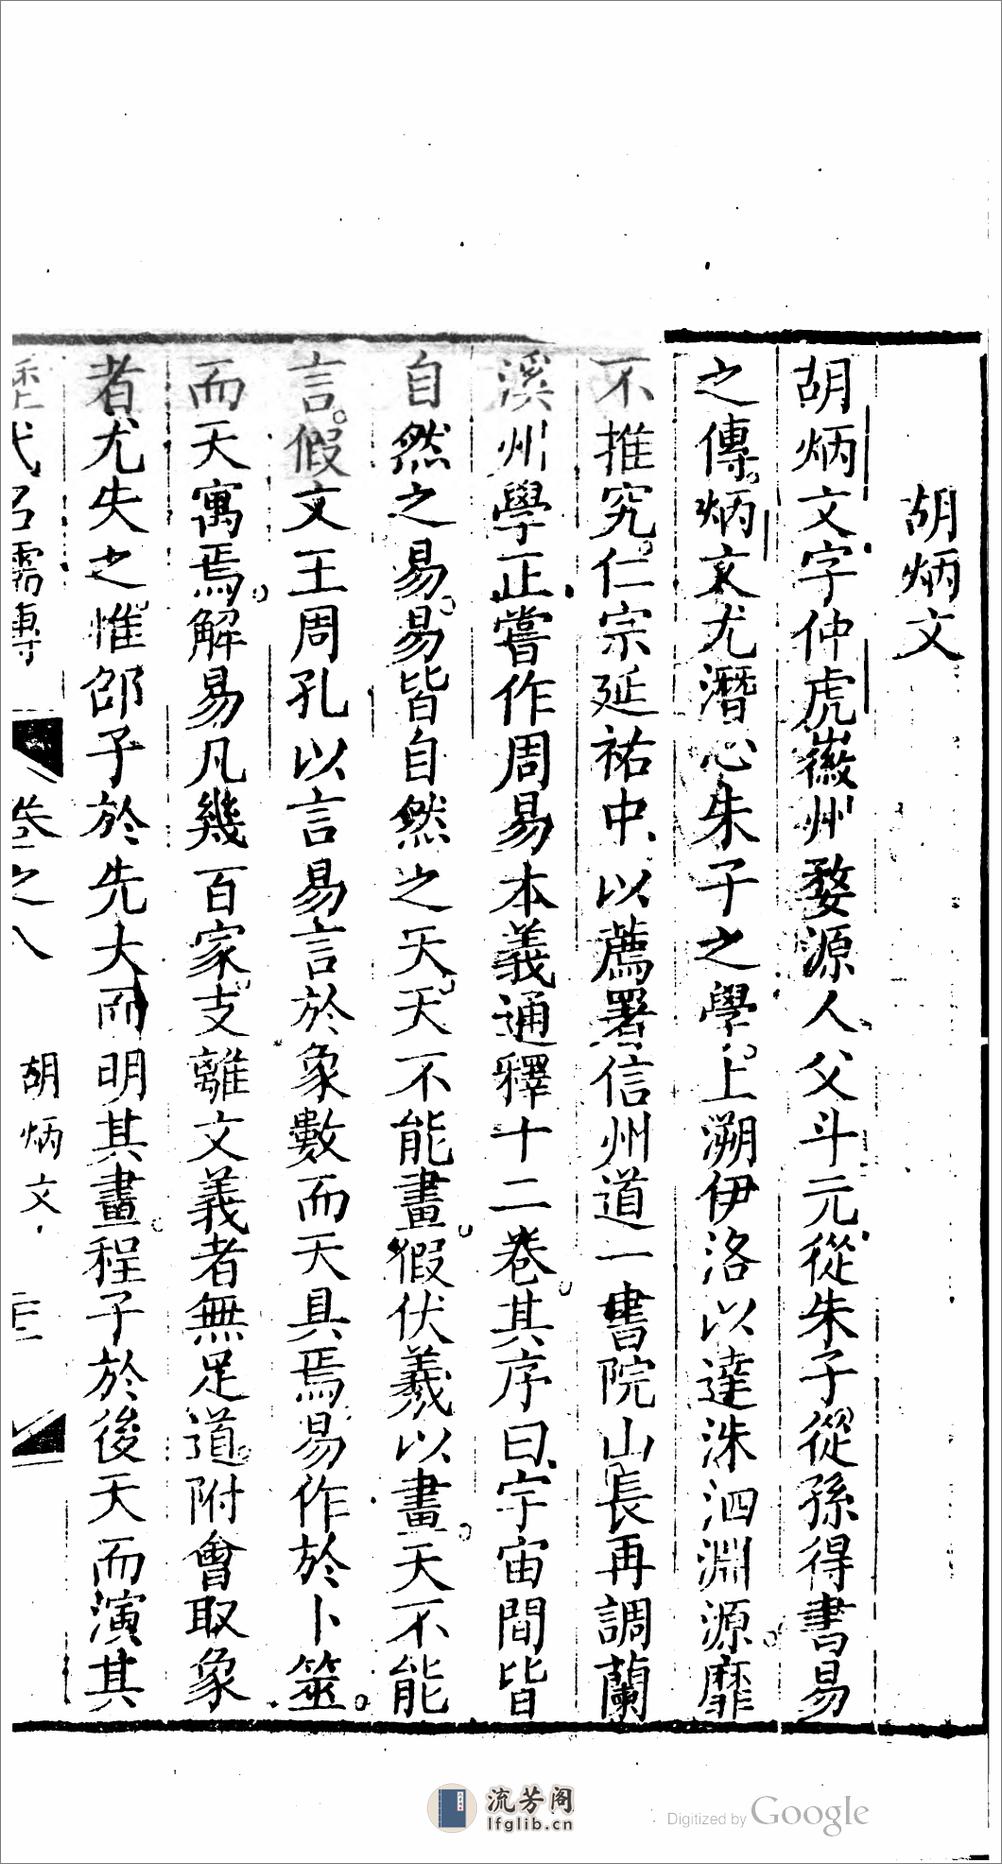 胡炳文
胡炳文字仲虎徽州婺源人父斗元從朱子從孫得書易
之傳炳文尤潛心朱子之學上溯伊洛以達洙泗淵源靡
不推究仁宗延祐中以薦署信州道一書院山長再調蘭
溪州學正嘗作周易本義通釋十二卷其序曰宇宙間皆
自然之易易皆自然之天天不能畫假伏羲以畫天不能
言假文王周孔以言易言於象數而天具焉易作於卜筮
而天寓焉解易凡幾百家支離文義者無足道附會取象
者尤失之惟邵子於先大而明其畫程子於後天而演其
歷代名儒傳 卷之八 胡炳文
流芳阁
lfglib.cn
Digitized by Google